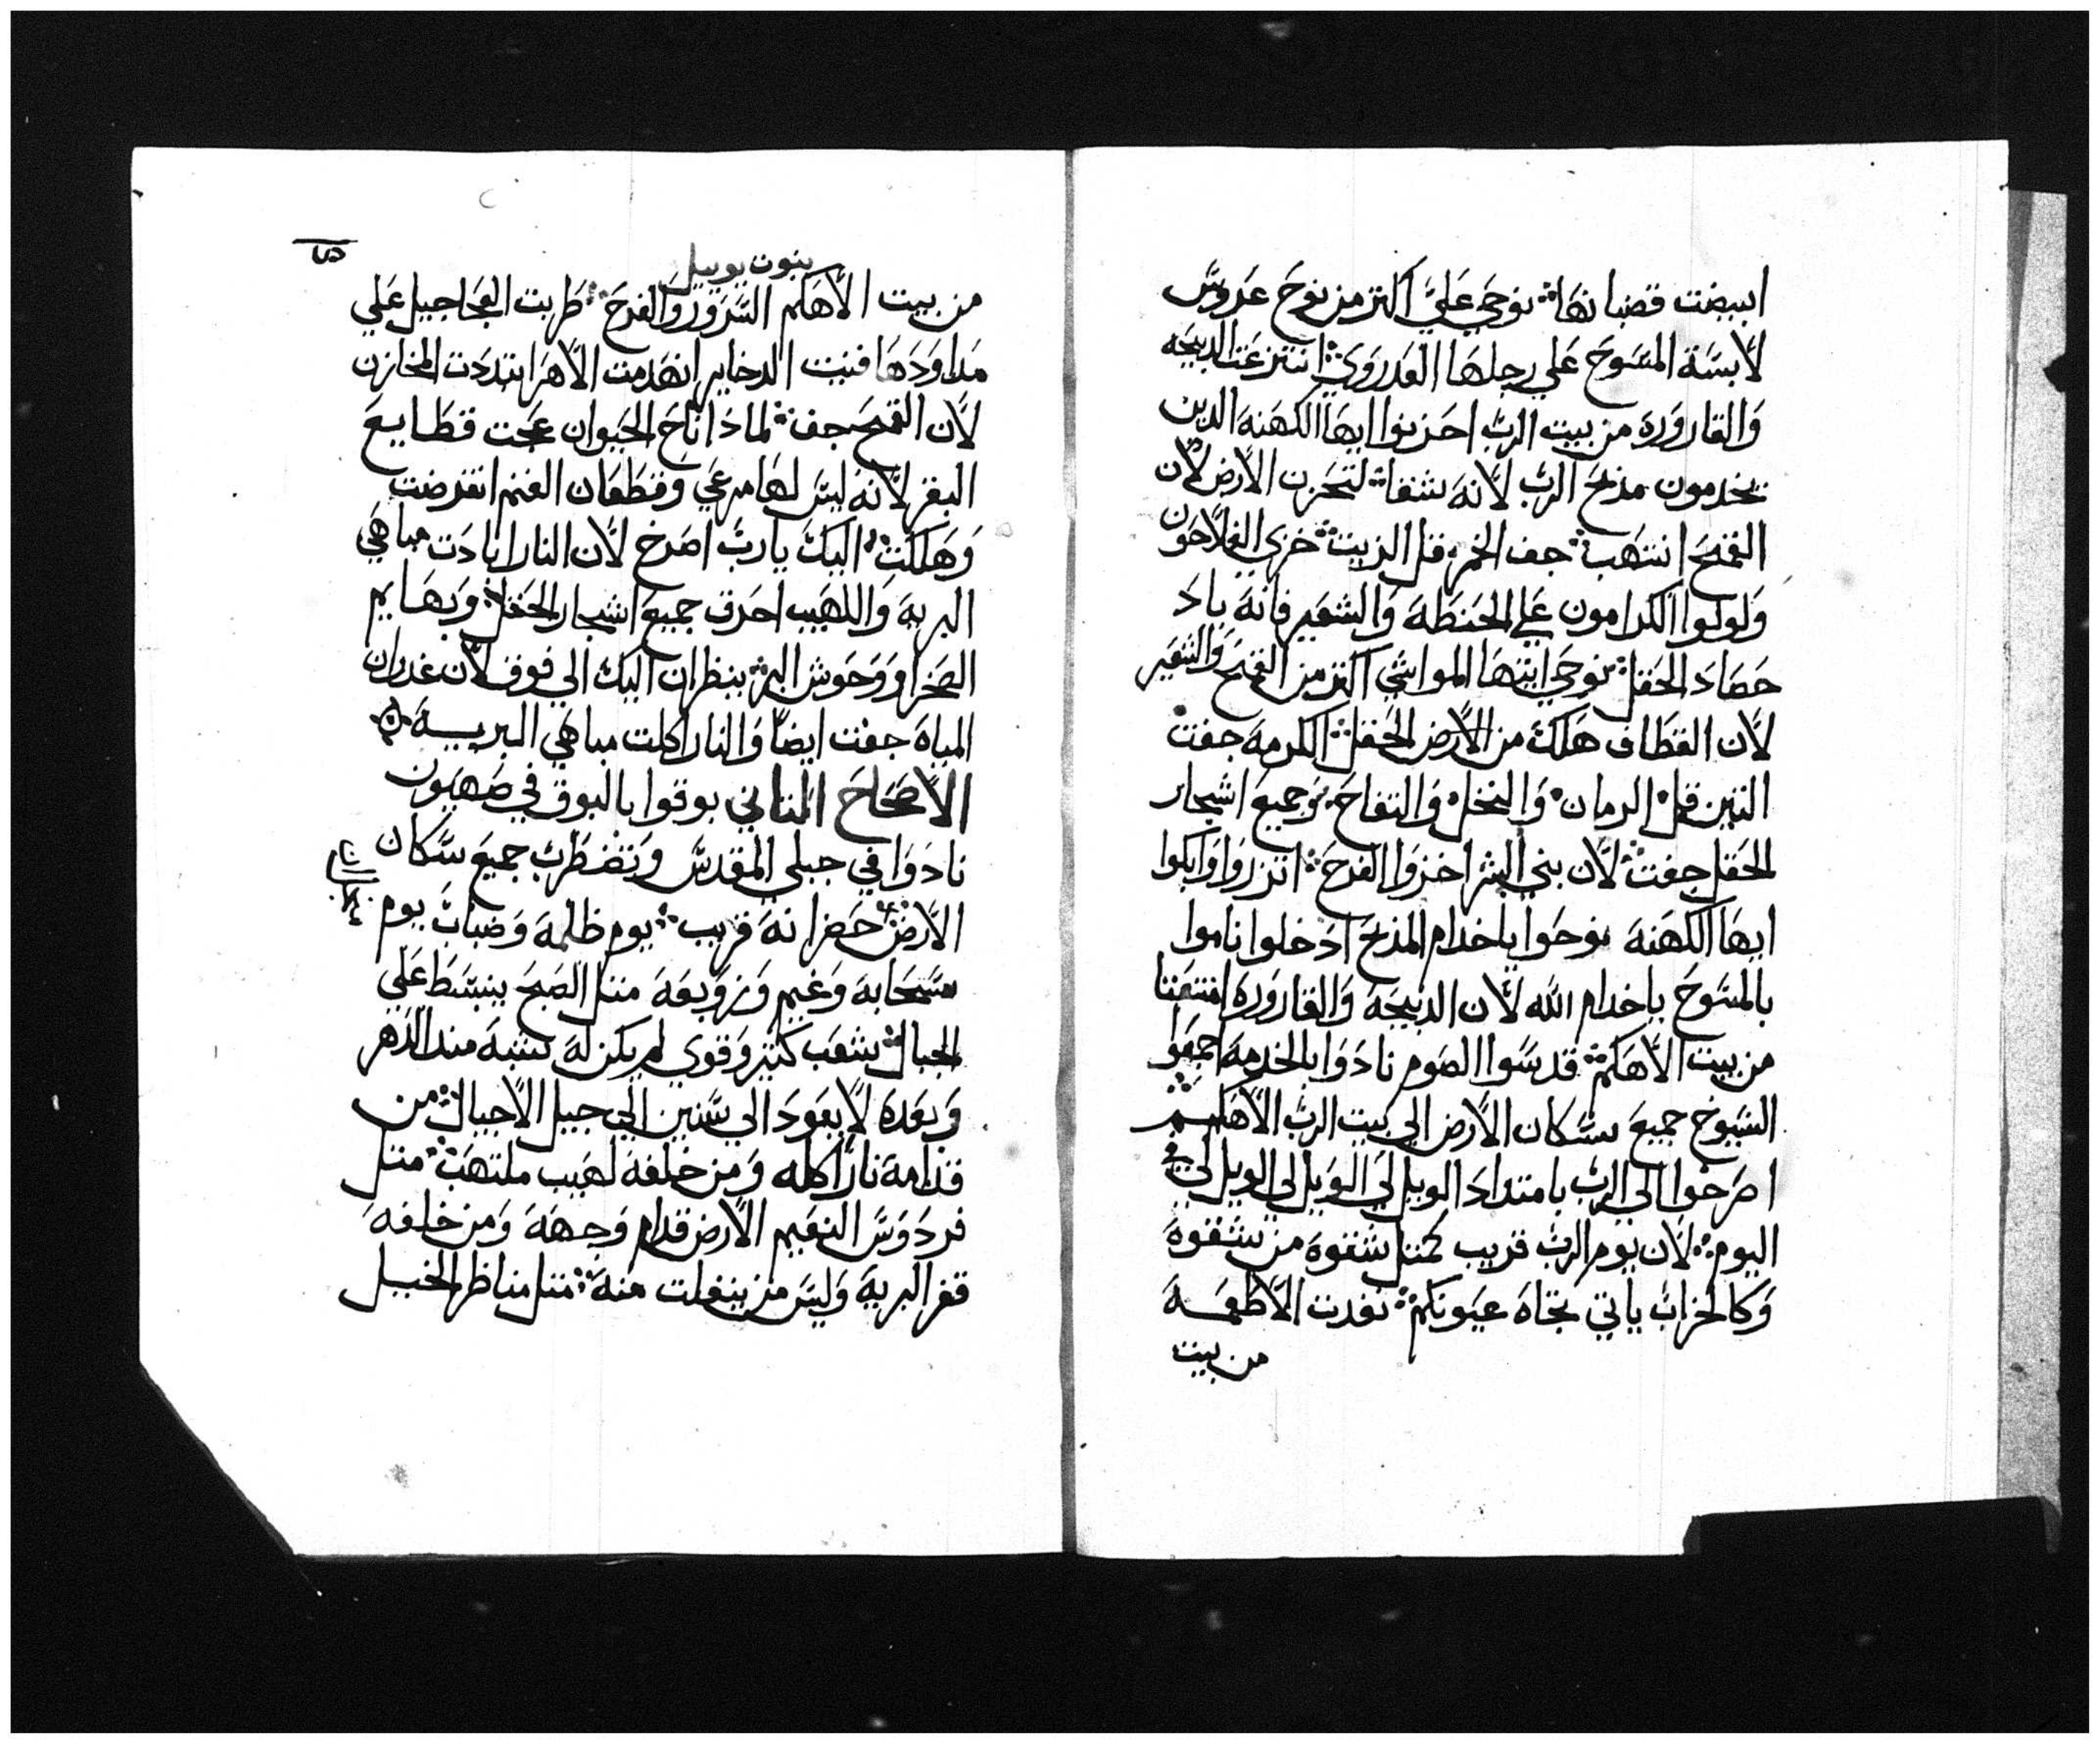 ابيضت قضبانها؞ نوحي عليَّ اكتر من نوح عروسَّ
لابسَّة المسَّوحَ علي رجلهَا العَدرَوَي؞ انتزعَتَ الدبيحَه
وَالقارورَه من بيت الربَّ احزنوا ايهَا الكهَنهَ الدين
يخدمون مذبحَ الربَّ لانهَ شقا؞ لتحَزن الارض لان
القمَحَ انتهَب؞ جف الخمر؞ قل الزيت؞ خزي الفلاحَون
وَلولوا الكرامون علي الحَنطَهَ وَالشعَير فانهَ بادَ
حَصَادَ الحَقل؞ نوحَي ايتهَا المواشي اكتر من القمَحَ وَالشعَير
لان القطَاف هَلكَ من الارض الحَقل؞ الكرمهَ جفت
التين قل؞ الرمان؞ وَالنخل؞ وَالتفاحَ؞ وَجميعَ اشجار
الحَقل جفت؞ لان بني البشر اخزوَا الفرحَ؞ اتزروَا وَابكوا
ايهَا الكهَنهَ نوحَوا ياخدام المذبحَ ادَخلوا ناموا
بالمسَّوحَ ياخدام الله لان الدبيحَهَ وَالقاروَرهَ انتقتا
من بيت الاهَكم؞ قدسَّوا الصَوم نادَوَا بالخدمهَ اجمعَوا
الشيوخ جميعَ سَّكان الارض الي بيت الربَّ الاهَكم؞
اصَرخوا الي الربَّ بامتدادَ الويل لي الوَيل لي الويل لي في
اليوم؞ لان يوم الربَّ قريب كمتل شقوهَ من شقوهَ
وَكالخرابَ ياتي تجاهَ عيَونكم؞ نفدت الاطعَمَهَ
من بيت
بنوت يوييل
من بيت الاهَكم السَّروَر وَالفرحَ؞ طَربت العَجاجيل عَلي
مَداوَدَهَا فنيت الدخاير انهَدمت الاهَرا ابتددَت المخازن
لان القمَحَ جف؞ لمادَا ناحَ الحَيوان عَجت قطَايعَ
البقر لانهَ ليسَّ لهَا مرعَي وقطَعَان الغنم انقرضت
وَهَلكت؞ اليكَ ياربَّ اصَرخ لان النار ابادَت مباهَي
البريهَ وَاللهَيب احَرق جميعَ اشجار الحَقل؞ وَبهَايم
الصَحَرا وَوحَوش البر؞ ينظَران اليكَ الي فوق لان غدران
المياهَ جفت ايضاً وَالنار اكلت مباهَي البريــهَ
الاصَحَاحَ التاني بوقوا بالبوق في صَهَيَون
نادَوَا في جبلي المقدسَّ وَتضطَربَ جميعَ سَّكان
الارض؞ حَضر انهَ قريب؞ يوم ظَلمهَ وَضبابَ يوم
سَّحَابهَ وَغيم وَزوَبعَهَ متل الصَبحَ ينبسَّطَ عَلي
الجبال؞ شعَبَ كتير وَقوي لم يكن لهَ شبهَ مند الدهَر
وَبعَدهَ لايعَودَ الي سَّنين الي جيل الاجيال؞ من
قدامهَ ناراً اكله وَمن خلفهَ لهَيب ملتهَب؞ متل
فردَوَسَّ النعَيم الارض قدام وَجههَ وَمن خلفهَ
قفر البريهَ وَليسَّ من ينفلت منهَ؞ متل مناظَر الخيل